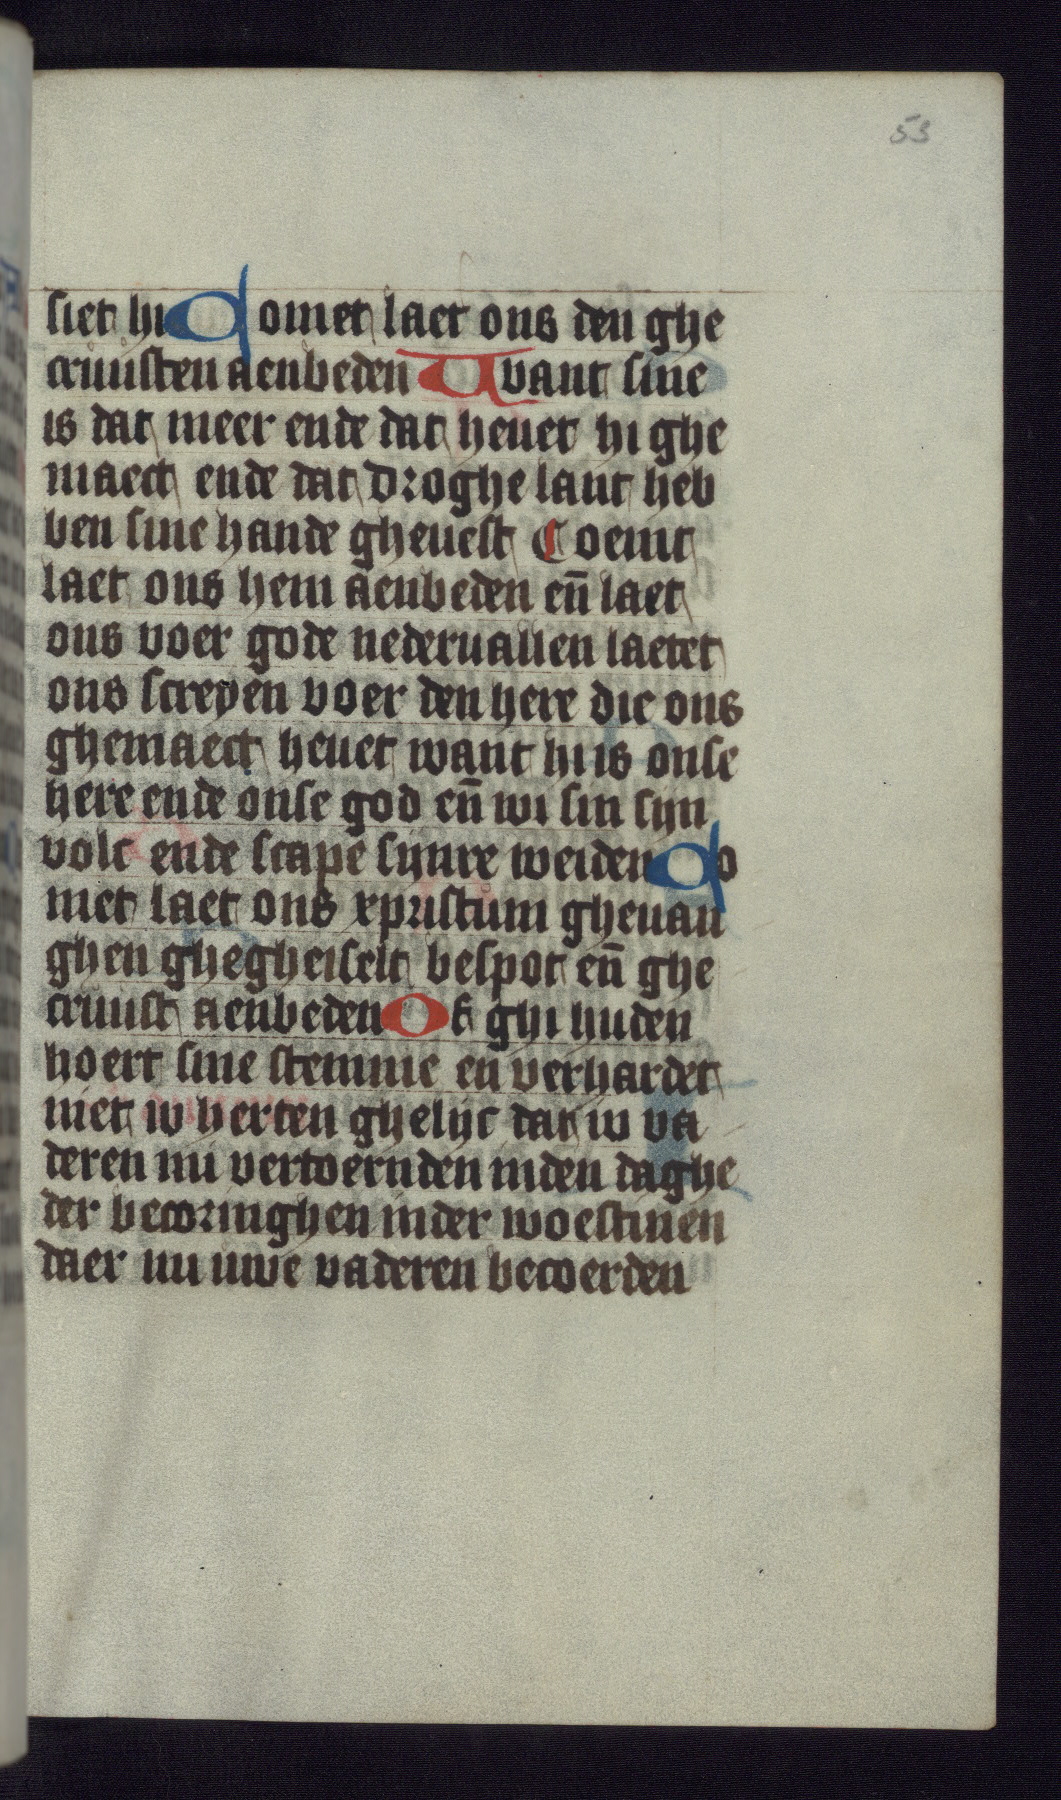 53
siet hi Comet laet ons den ghe
cruusten aenbeden Want sine
is dat meer ende dat heuet hi ghe
maect ende dat droghe lant heb
ben sine hande gheuest Coemt
laet ons hem aenbeden eñ laet
ons voer gode nederuallen laetet
ons screyen voer den here die ons
ghemaect heuet want hi is onse
here ende onse god eñ wi sin sijn
volc ende scape sijnre weiden Co
met laet ons xpristum gheuan
ghen ghegheiselt bespot eñ ghe
cruust aenbeden Of ghi huden
hoert sine stemme en verhardet
niet iv herten ghelijc dat iu va
deren mi vertoernden inden daghe
der becoringhen inder woestinen
daer mi uwe vaderen becoerden